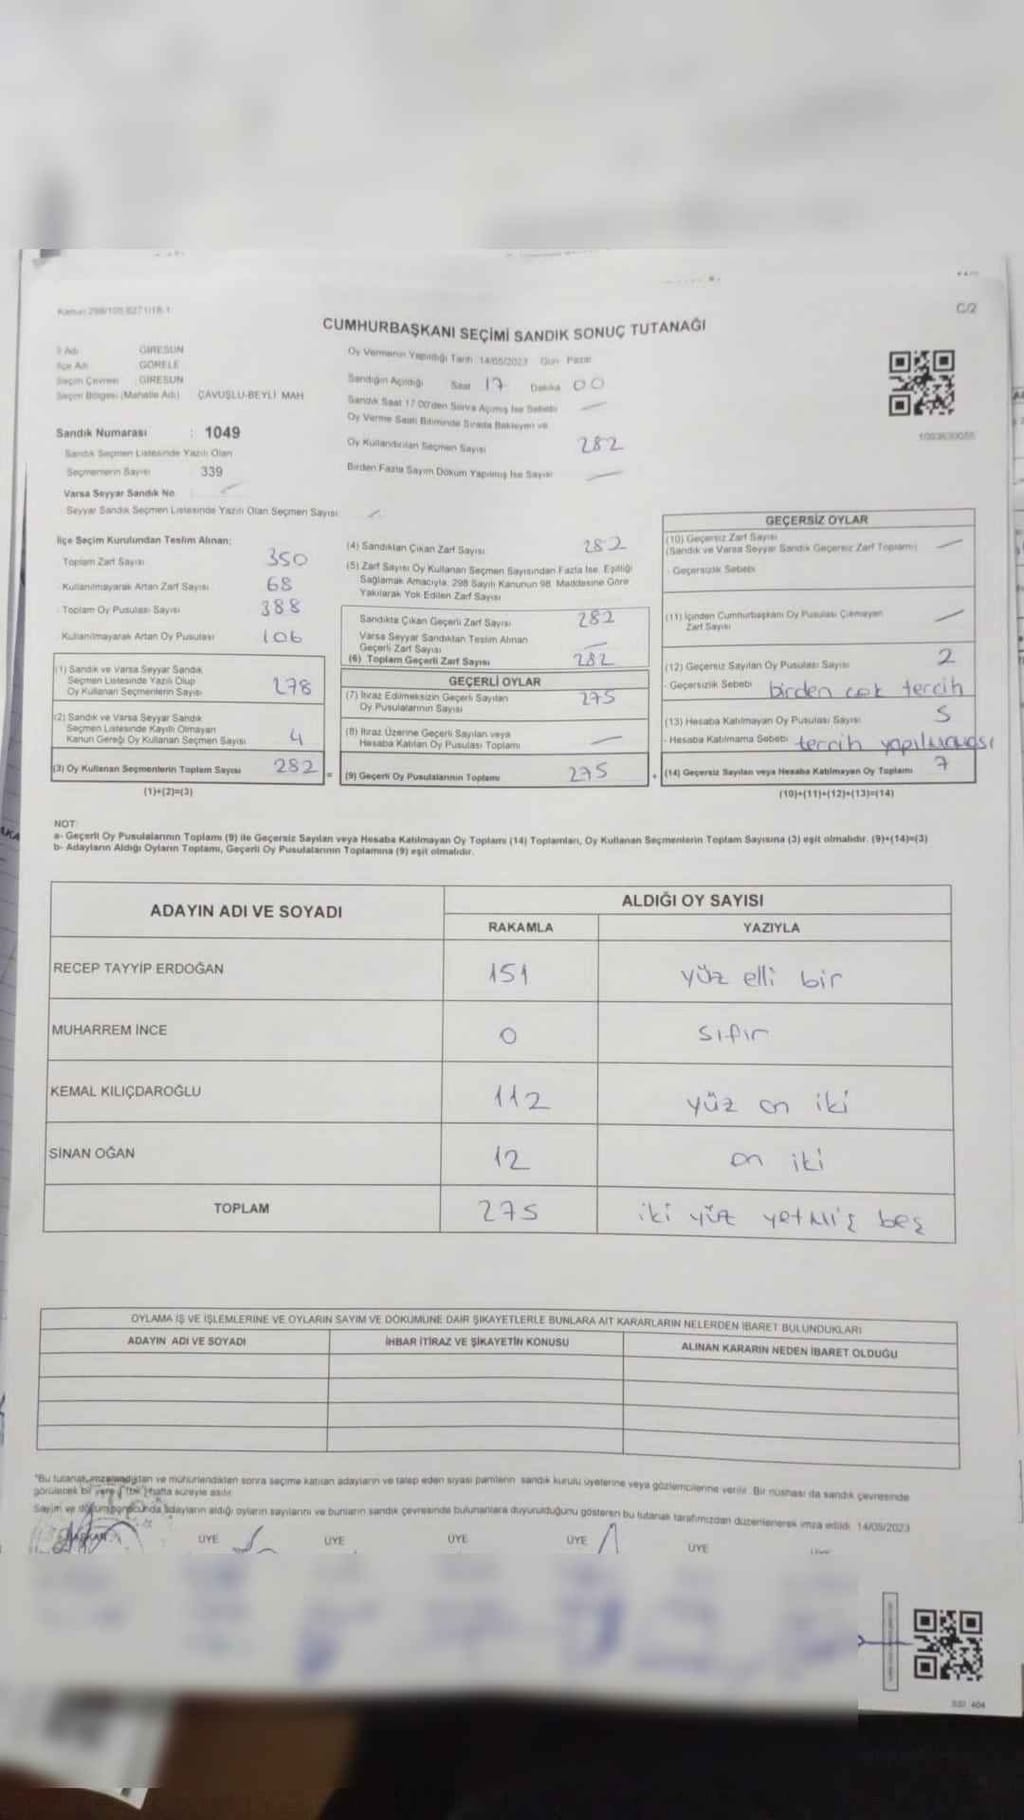 C/2
CUMHURBAŞKANI SEÇİMİ SANDIK SONUÇ TUTANAĞI
İl Adı GİRESUN
İlçe Adı GÖRELE
Seçim Çevresi GİRESUN
Seçim Bölgesi (Mahalle Adı) ÇAVUŞLU-BEYLİ MAH
Sandık Numarası : 1049
Sandık Seçmen Listesinde Yazılı Olan
Seçmenlerin Sayısı 339
Varsa Seyyar Sandık No
Seyyar Sandık Seçmen Listesinde Yazılı Olan Seçmen Sayısı
Oy Vermenin Yapıldığı Tarih 14/05/2023 Gün Pazar
Sandığın Açıldığı Saat 17 Dakika 00
Sandık Saat 17 00'den Sonra Açılmış İse Sebebi
Oy Verme Saati Bitiminde Sırada Bekleyen ve
Oy Kullandırılan Seçmen Sayısı 282
Birden Fazla Sayım Döküm Yapılmış İse Sayısı
İlçe Seçim Kurulundan Teslim Alınan:
Toplam Zarf Sayısı 350
Kullanılmayarak Artan Zarf Sayısı 68
Toplam Oy Pusulası Sayısı 388
Kullanılmayarak Artan Oy Pusulası 106
(1) Sandık ve Varsa Seyyar Sandık
Seçmen Listesinde Yazılı Olup
Oy Kullanan Seçmenlerin Sayısı 278
(2) Sandık ve Varsa Seyyar Sandık
Seçmen Listesinde Kayıtlı Olmayan
Kanun Gereği Oy Kullanan Seçmen Sayısı 4
(3) Oy Kullanan Seçmenlerin Toplam Sayısı 282 =
(1)+(2)=(3)
(4) Sandıktan Çıkan Zarf Sayısı 282
(5) Zarf Sayısı Oy Kullanan Seçmen Sayısından Fazla İse, Eşitliği
Sağlamak Amacıyla, 298 Sayılı Kanunun 98. Maddesine Göre
Yakılarak Yok Edilen Zarf Sayısı
Sandıkta Çıkan Geçerli Zarf Sayısı 282
Varsa Seyyar Sandıktan Teslim Alınan
Geçerli Zarf Sayısı
(6) Toplam Geçerli Zarf Sayısı 282
GEÇERLİ OYLAR
(7) İtiraz Edilmeksizin Geçerli Sayılan
Oy Pusulalarının Sayısı 275
(8) İtiraz Üzerine Geçerli Sayılan veya
Hesaba Katılan Oy Pusulası Toplamı
(9) Geçerli Oy Pusulalarının Toplamı 275 +
GEÇERSİZ OYLAR
(10) Geçersiz Zarf Sayısı
(Sandık ve Varsa Seyyar Sandık Geçersiz Zarf Toplamı)
- Geçersizlik Sebebi
(11) İçinden Cumhurbaşkanı Oy Pusulası Çıkmayan
Zarf Sayısı
(12) Geçersiz Sayılan Oy Pusulası Sayısı 2
- Geçersizlik Sebebi birden çok tercih
(13) Hesaba Katılmayan Oy Pusulası Sayısı 5
- Hesaba Katılmama Sebebi tercih yapılmaması
(14) Geçersiz Sayılan veya Hesaba Katılmayan Oy Toplamı 7
(10)+(11)+(12)+(13)=(14)
NOT:
a- Geçerli Oy Pusulalarının Toplamı (9) ile Geçersiz Sayılan veya Hesaba Katılmayan Oy Toplamı (14) Toplamları, Oy Kullanan Seçmenlerin Toplam Sayısına (3) eşit olmalıdır. (9)+(14)=(3)
b- Adayların Aldığı Oyların Toplamı, Geçerli Oy Pusulalarının Toplamına (9) eşit olmalıdır.
ADAYIN ADI VE SOYADI ALDIĞI OY SAYISI
RAKAMLA YAZIYLA
RECEP TAYYİP ERDOĞAN 151 yüz elli bir
MUHARREM İNCE 0 sıfır
KEMAL KILIÇDAROĞLU 112 yüz on iki
SİNAN OĞAN 12 on iki
TOPLAM 275 iki yüz yetmiş beş
OYLAMA İŞ VE İŞLEMLERİNE VE OYLARIN SAYIM VE DÖKÜMÜNE DAİR ŞİKAYETLERLE BUNLARA AİT KARARLARIN NELERDEN İBARET BULUNDUKLARI
ADAYIN ADI VE SOYADI İHBAR İTİRAZ VE ŞİKAYETİN KONUSU ALINAN KARARIN NEDEN İBARET OLDUĞU
"Bu tutanak imzalandıktan ve mühürlendikten sonra seçime katılan adayların ve talep eden siyasi partilerin sandık kurulu üyelerine veya gözlemcilerine verilir. Bir nüshası da sandık çevresinde
görülecek bir yere 1 (bir) hafta süreyle asılır.
Sayım ve döküm sonucunda adayların aldığı oyların sayılarını ve bunların sandık çevresinde bulunanlara duyurulduğunu gösteren bu tutanak tarafımızdan düzenlenerek imza edildi. 14/05/2023
BAŞKAN ÜYE ÜYE ÜYE ÜYE ÜYE